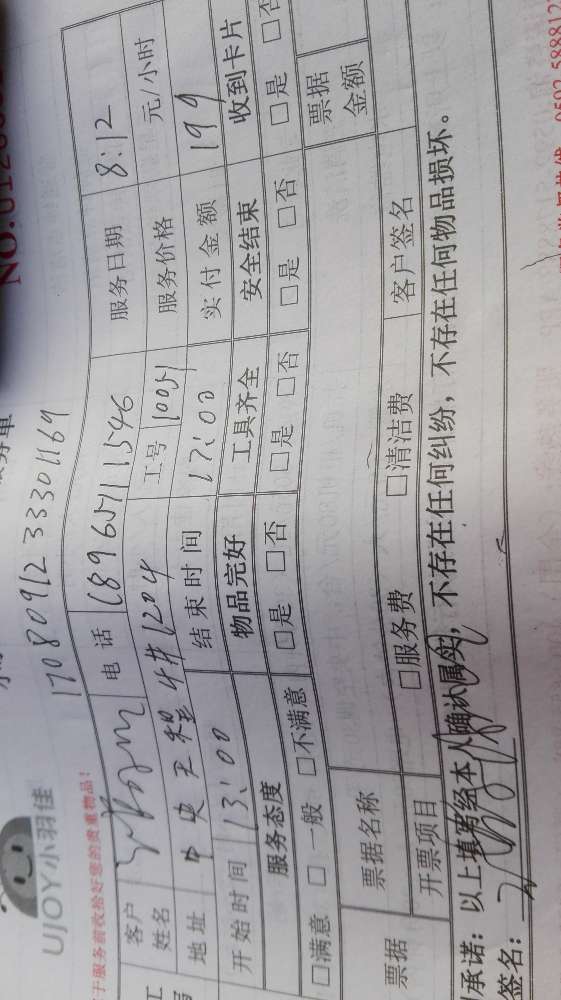 UJOY小羽佳
170809123330 1169
客户姓名 电话 18965711546 服务日期 8:12
地址 中央 4# 1204 工号 10051 服务价格 元/小时
开始时间 13:00 结束时间 17:00 实付金额 199
服务态度 物品完好 工具齐全 安全结束 收到卡片
□满意 □一般 □不满意 □是 □否 □是 □否 □是 □否 □是 □否
票据 票据名称 票据金额
开票项目 □服务费 □清洁费 客户签名
承诺：以上填写经本人确认属实，不存在任何纠纷，不存在任何物品损坏。
签名：